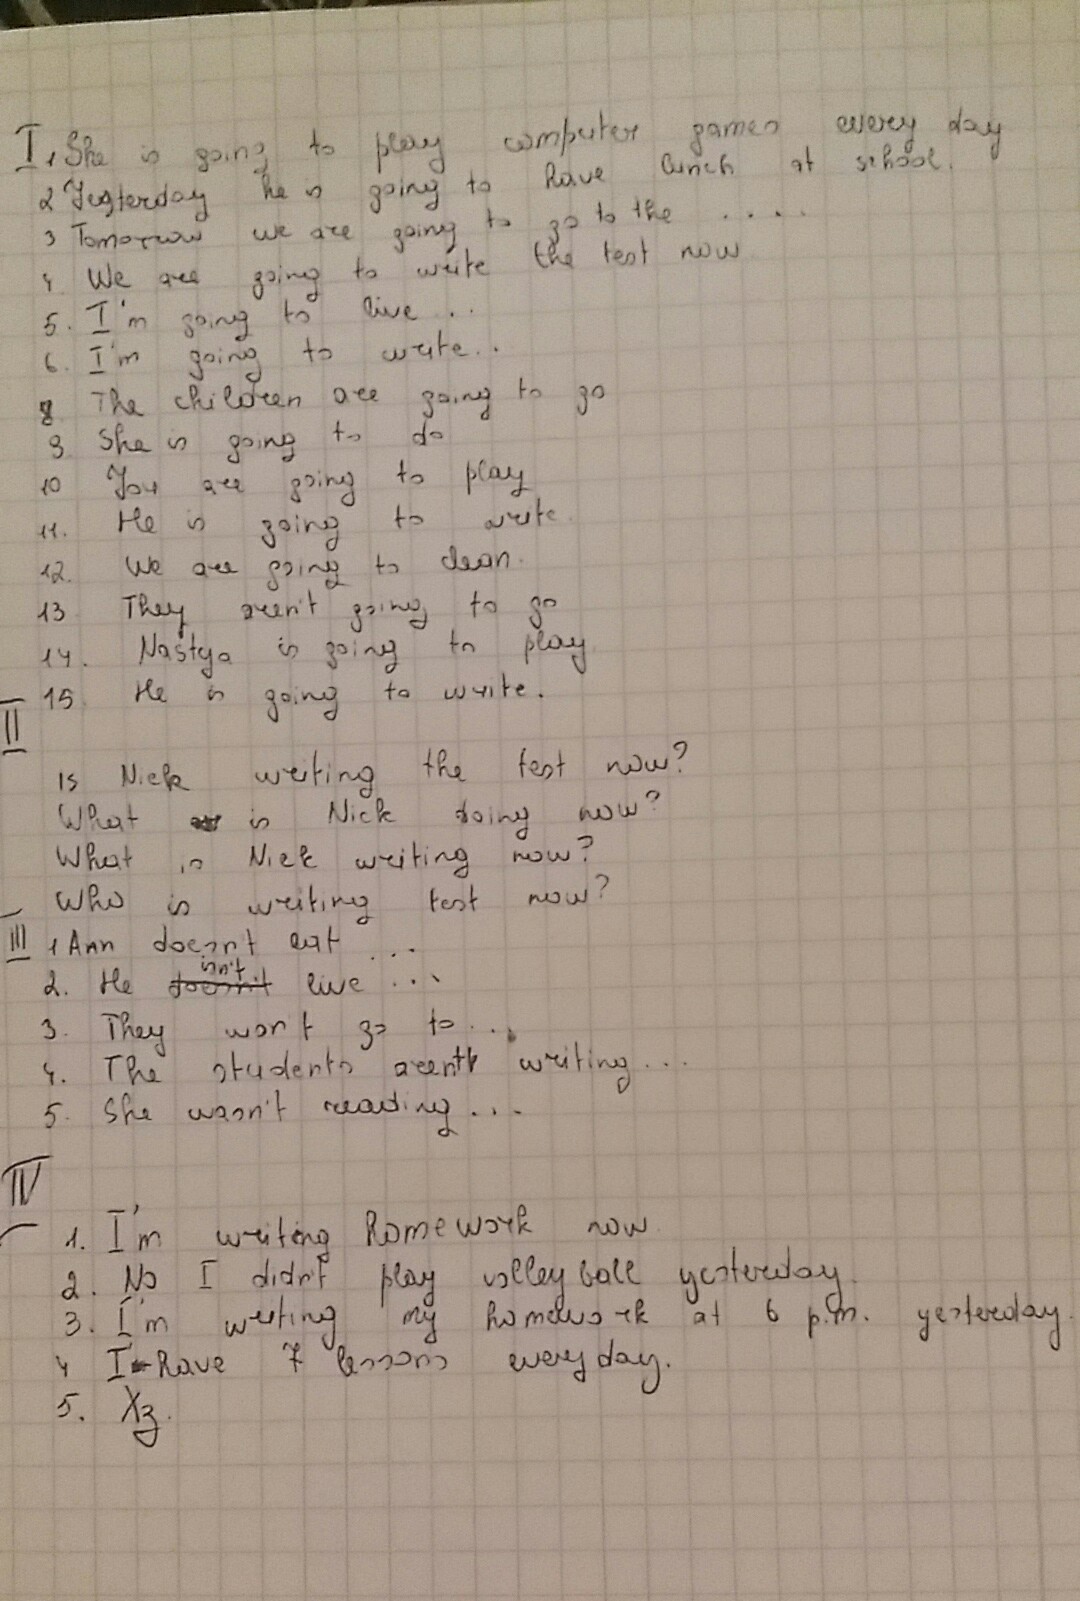 I 1 She is going to play computer games every day
2 Yesterday he is going to have lunch at school.
3 Tomorrow we are going to go to the ....
4 We are going to write the test now
5. I'm going to live ...
6. I'm going to write..
8 The children are going to go
9 She is going to do
10 You are going to play
11. He is going to write.
12. We are going to clean.
13 They aren't going to go
14. Nastya is going to play
15. He is going to write.
II
Is Nick writing the test now?
What is Nick doing now?
What is Nick writing now?
Who is writing test now?
III 1 Ann doesn't eat ...
2. He isn't live ...
3. They won't go to ...
4. The students arent writing...
5. She wasn't reading ...
IV
1. I'm writing homework now.
2. No I didn't play volleyball yesterday.
3. I'm writing my homework at 6 p.m. yesterday.
4 I have 7 lessons every day.
5. Xz.